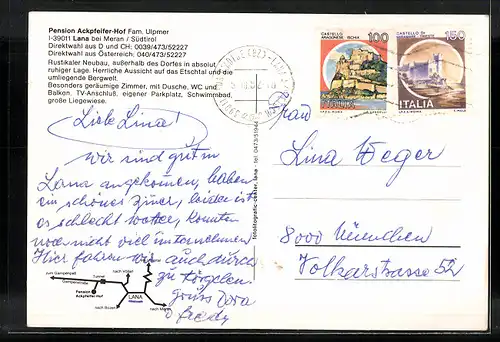 Pension Ackpfeifer-Hof Fam. Ulpmer
I-39011 Lana bei Meran / Südtirol
Direktwahl aus D und CH: 0039/473/52227
Direktwahl aus Österreich: 040/473/52227
Rustikaler Neubau, außerhalb des Dorfes in absolut
ruhiger Lage. Herrliche Aussicht auf das Etschtal und die
umliegende Bergwelt.
Besonders geräumige Zimmer, mit Dusche, WC und
Balken, TV-Anschluß, eigener Parkplatz, Schwimmbad,
große Liegewiese.
Liebe Lina!
wir sind gut in
Lana angekommen, haben
ein schönes Zimer, leider ist
es schlecht wetter, konnten
noch nicht viel unternehmen
Hier fahren wir auch durch
zu Törgelen.
Gruss Dora
Fredy
zum Gampenpaß
Gampenstraße
Tunnel
nach Völlan
Pension
Ackpfeifer-Hof
LANA
nach Bozen
nach Meran
fotolitografic-center, lana - tel. 0473/51944
CASTELLO
ARAGONESE ISCHIA
100
ITALIA
CASTELLO DI
150
ITALIA
Frau
Lina Weger
8000 München
Volkarstrasse 52